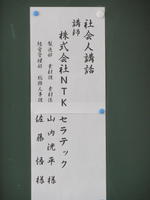 社会人講話
講師
株式会社NTKセラテック
製造部 素材課 素材係 山内洸平様
経営管理部 総務人事課 佐藤悟様